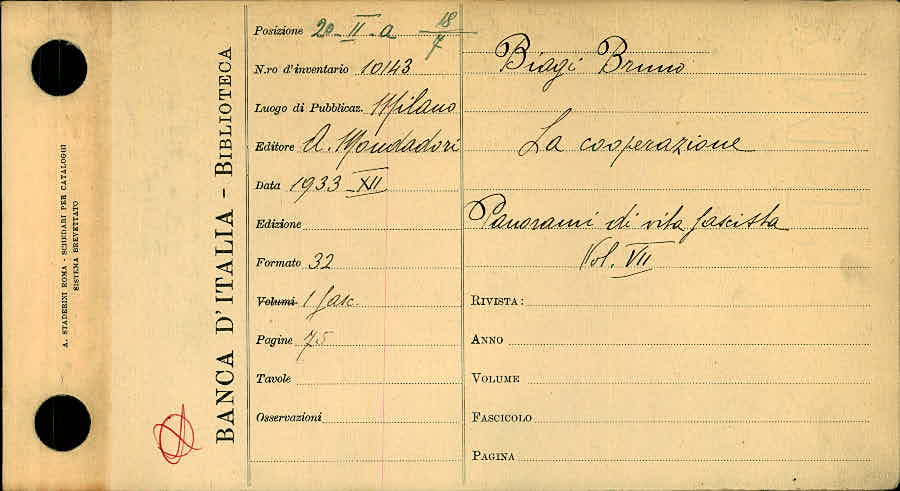 A. STADERINI ROMA - SCHEDARI PER CATALOGHI
SISTEMA BREVETTATO
BANCA D'ITALIA - BIBLIOTECA
Posizione 20-II-a 18/7
N.ro d'inventario 10143
Luogo di Pubblicaz. Milano
Editore A. Mondadori
Data 1933-XII
Edizione
Formato 32
Volumi 1 fasc.
Pagine 75
Tavole
Osservazioni
Biagi Bruno
La cooperazione
Panorami di vita fascista
Vol. VII
RIVISTA:
ANNO
VOLUME
FASCICOLO
PAGINA